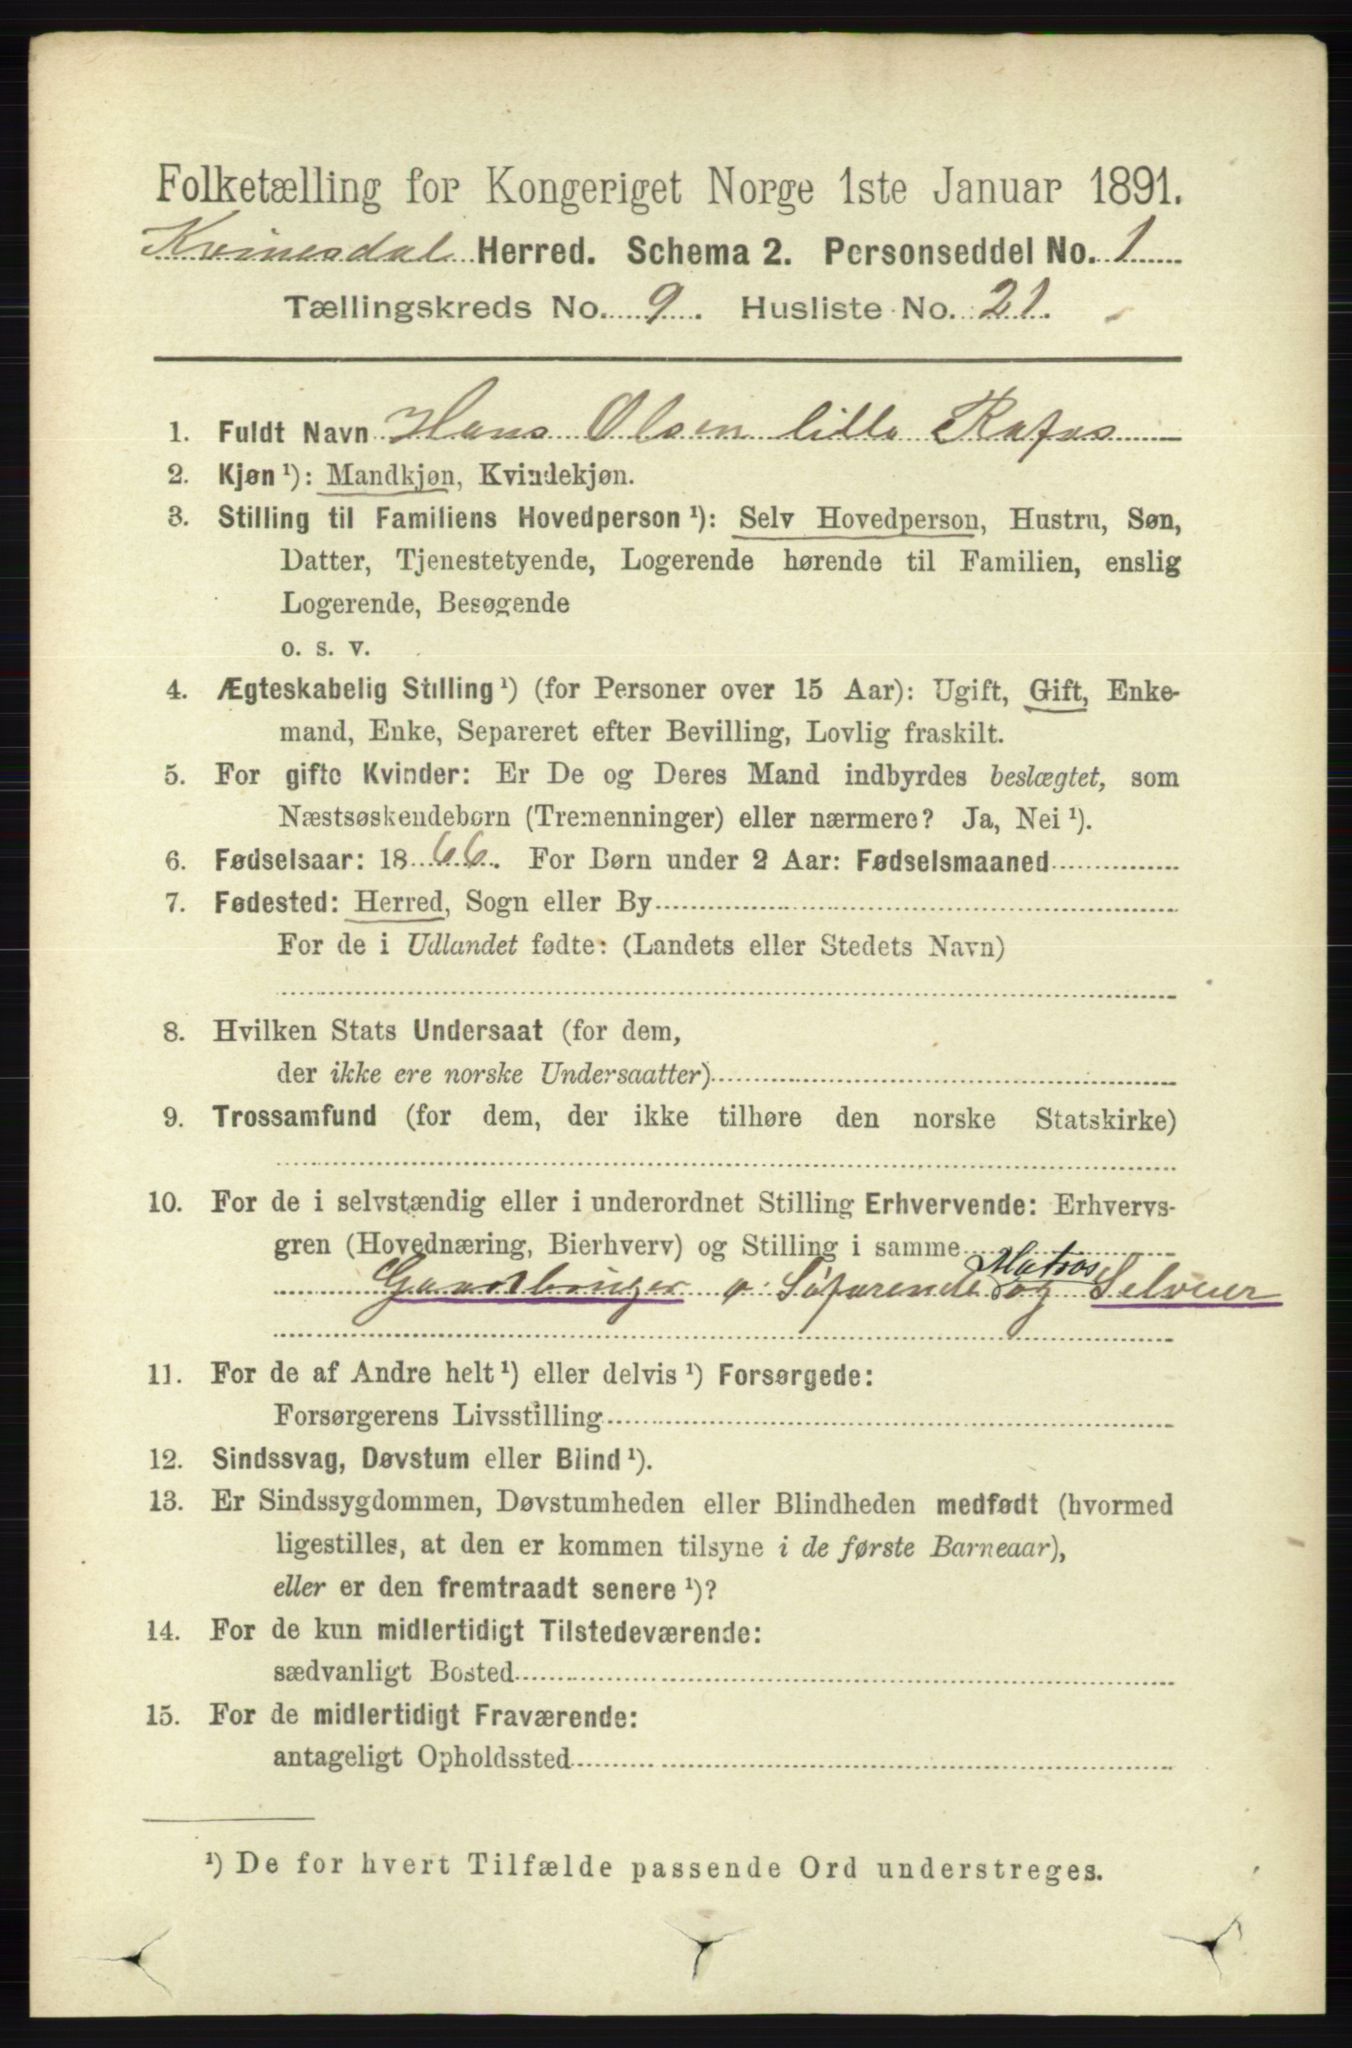 Folketælling for Kongeriget Norge 1ste Januar 1891.
Kvinesdal Herred. Schema 2. Personseddel No. 1
Tællingskreds No. 9. Husliste No. 21.
1. Fuldt Navn Hans Olsen lille Rafos
2. Kjøn ¹): Mandkjøn, Kvindekjøn.
3. Stilling til Familiens Hovedperson ¹): Selv Hovedperson, Hustru, Søn,
Datter, Tjenestetyende, Logerende hørende til Familien, enslig
Logerende, Besøgende
o. s. v.
4. Ægteskabelig Stilling ¹) (for Personer over 15 Aar): Ugift, Gift, Enke-
mand, Enke, Separeret efter Bevilling, Lovlig fraskilt.
5. For gifte Kvinder: Er De og Deres Mand indbyrdes beslægtet, som
Næstsøskendebørn (Tremenninger) eller nærmere? Ja, Nei ¹).
6. Fødselsaar: 1866. For Børn under 2 Aar: Fødselsmaaned
7. Fødested: Herred, Sogn eller By
For de i Udlandet fødte: (Landets eller Stedets Navn)
8. Hvilken Stats Undersaat (for dem,
der ikke ere norske Undersaatter)
9. Trossamfund (for dem, der ikke tilhøre den norske Statskirke)
10. For de i selvstændig eller i underordnet Stilling Erhvervende: Erhvervs-
gren (Hovednæring, Bierhverv) og Stilling i samme
Matros
Gaardbruger o. Søfarende og Selveier
11. For de af Andre helt ¹) eller delvis ¹) Forsørgede:
Forsørgerens Livsstilling
12. Sindssvag, Døvstum eller Blind ¹).
13. Er Sindssygdommen, Døvstumheden eller Blindheden medfødt (hvormed
ligestilles, at den er kommen tilsyne i de første Barneaar),
eller er den fremtraadt senere ¹)?
14. For de kun midlertidigt Tilstedeværende:
sædvanligt Bosted
15. For de midlertidigt Fraværende:
antageligt Opholdssted
¹) De for hvert Tilfælde passende Ord understreges.